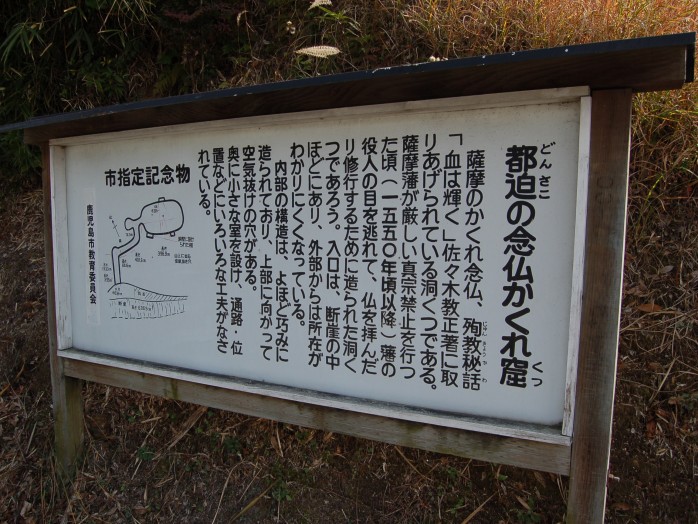 都迫の念仏かくれ窟
どんさこ
くつ
薩摩のかくれ念仏、殉教秘話
じゅんきょうひわ
「血は輝く」佐々木教正著に取
りあげられている洞くつである。
薩摩藩が厳しい真宗禁止を行つ
た頃（一五五〇年頃以降）藩の
役人の目を逃れて、仏を拝んだ
り修行するために造られた洞く
つであろう。入口は、断崖の中
ほどにあり、外部からは所在が
わかりにくくなっている。
内部の構造は、よほど巧みに
造られており、上部に向かって
空気抜けの穴がある。
奥に小さな室を設け、通路・位
置などにいろいろな工夫がなさ
れている。
市指定記念物
鹿児島市教育委員会